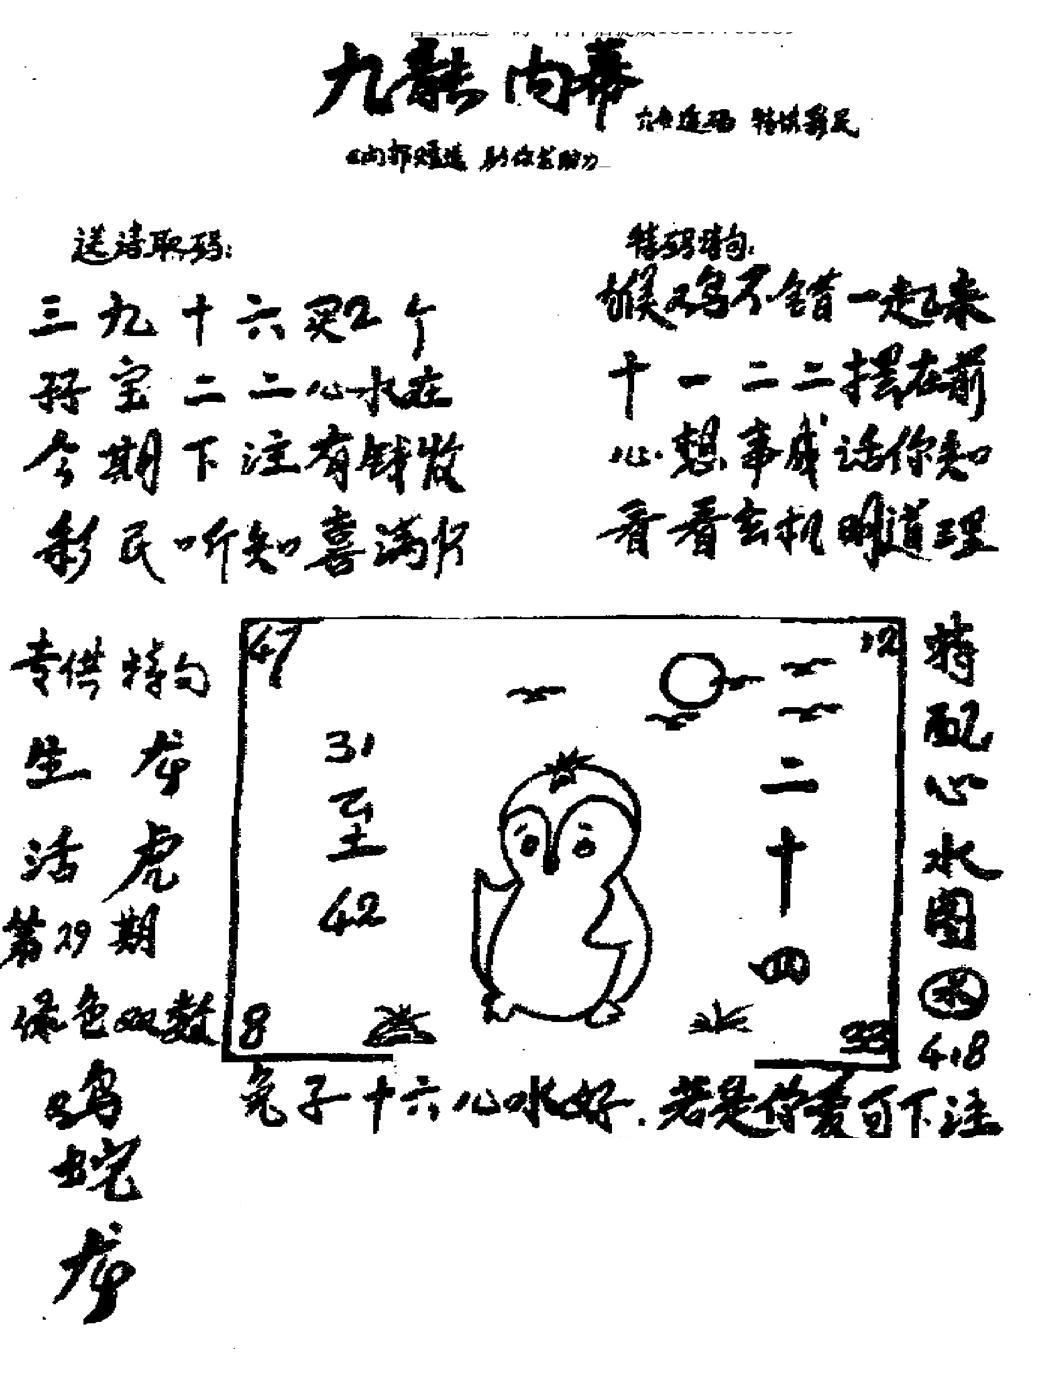 九龍内幕
六合透码 特供彩民
《内部难造 助你发财》
送诗取码:
三九十六买2个
孖宝二二心水在
今期下注有钱收
彩民听知喜满怀
特码诗句:
猴又鸟不错一起来
十一二二摆在前
心想事成话你知
看看玄机明道理
专供特句
生 龙
活 虎
第29期
绿色双数
鸡
蛇
龙
47
12
31
至
42
二
十
四
8
33
特配心水图
4.8
兔子十六心水好.若是你爱可下注